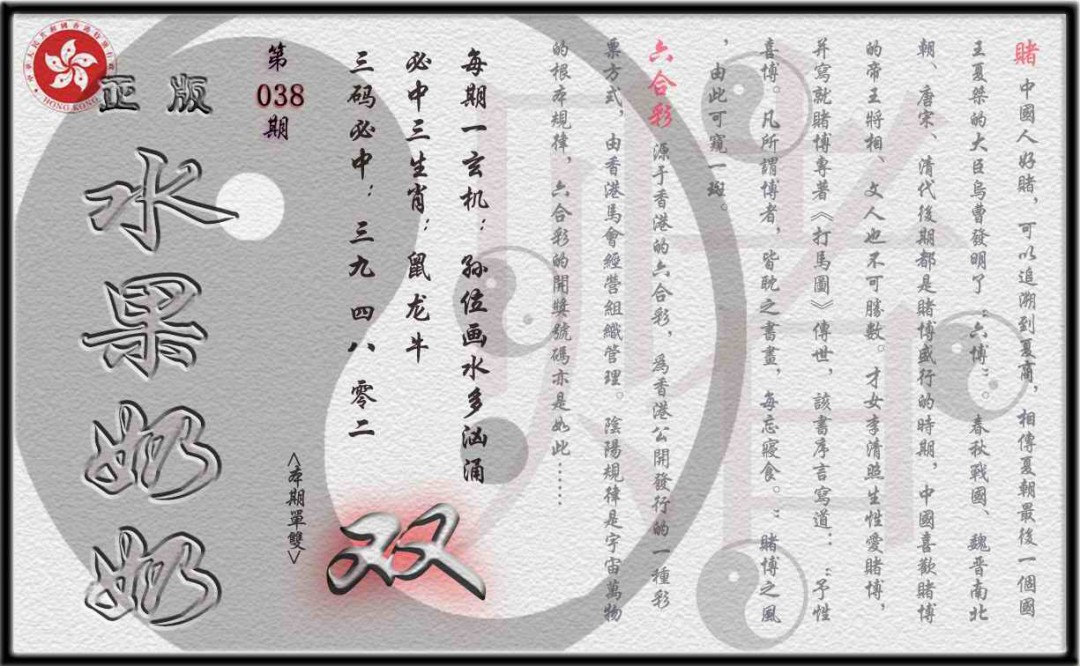 賭 中國人好賭，可以追溯到夏商，相傳夏朝最後一個國
王夏桀的大臣烏曹發明了“六博”。春秋戰國、魏晉南北
朝、唐宋、清代後期都是賭博盛行的時期，中國喜歡賭博
的帝王將相、文人也不可勝數。才女李清照生性愛賭博，
并寫就賭博專著《打馬圖》傳世，該書序言寫道：“予性
喜博。凡所謂博者，皆耽之書畫，每忘寢食。”賭博之風
，由此可窺一斑。
六合彩 源于香港的六合彩，爲香港公開發行的一種彩
票方式，由香港馬會經營組織管理。陰陽規律是宇宙萬物
的根本規律，六合彩的開獎號碼亦是如此……
每期一玄机：孙位画水多汹涌
必中三生肖：鼠龙牛
三码必中：三九 四八 零二
<本期單雙>
双
第
038
期
正版
水果奶奶
HONG KONG